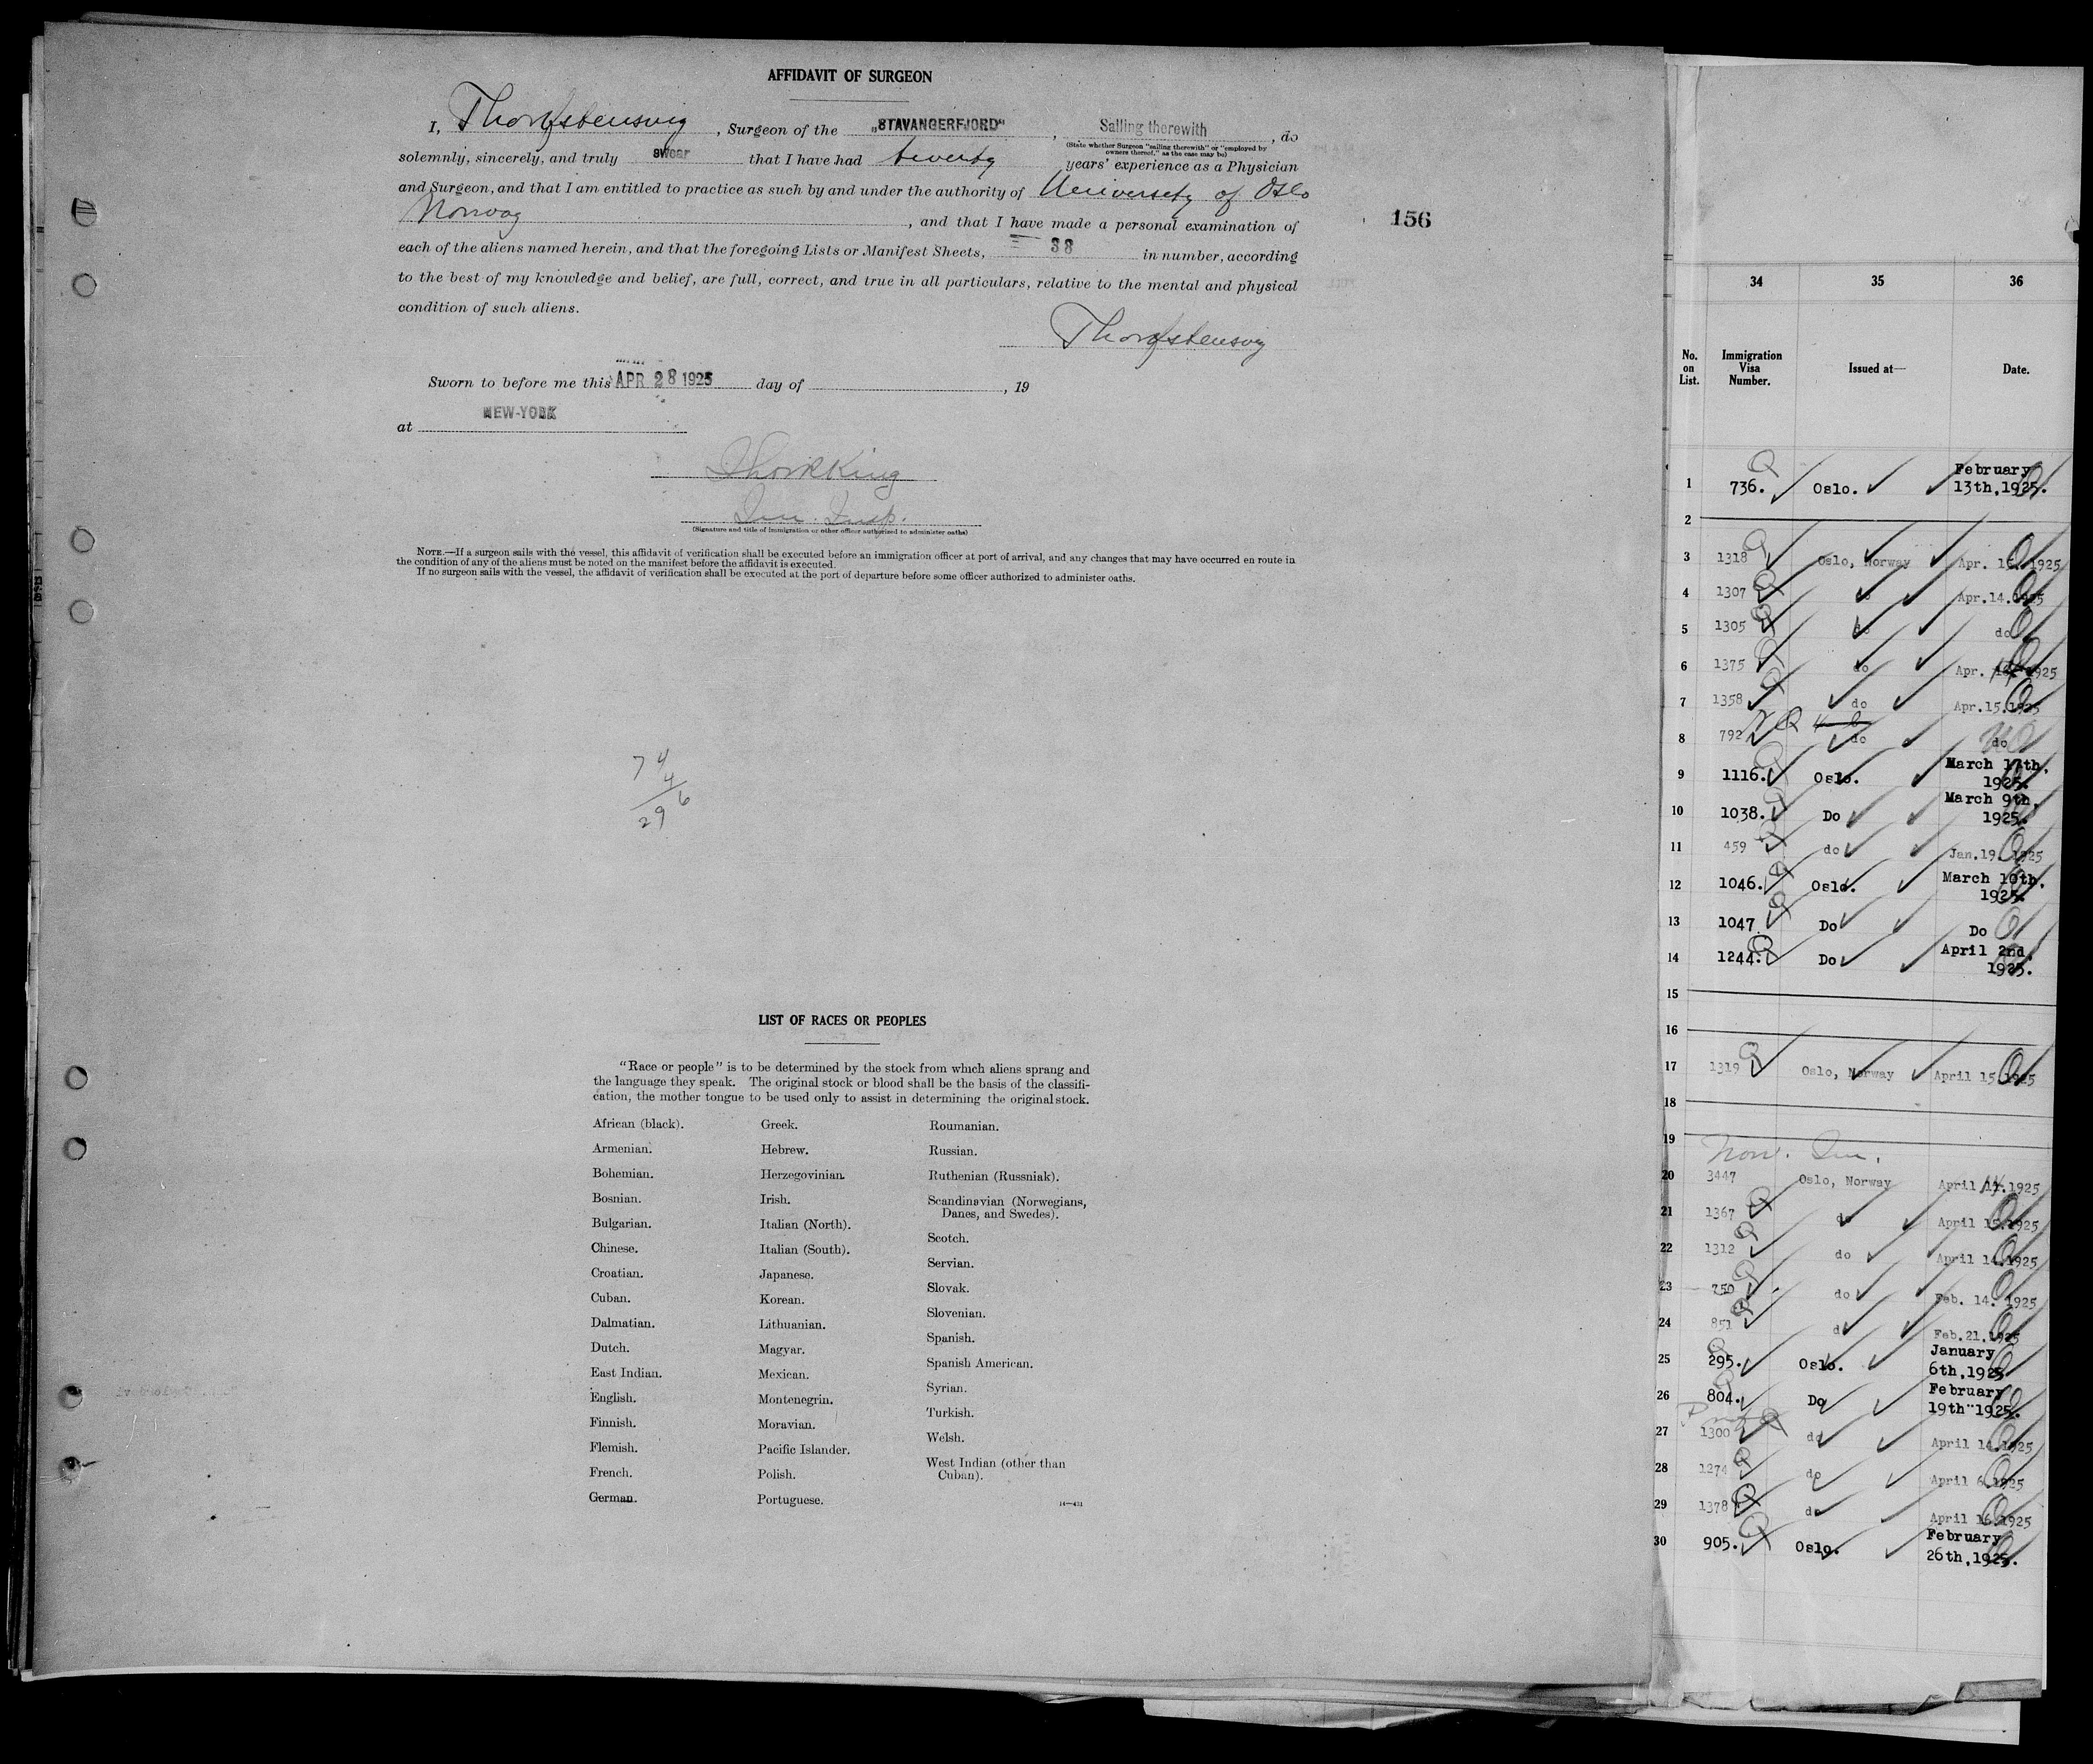 AFFIDAVIT OF SURGEON
I, , Surgeon of the „STAVANGERFJORD“ , Sailing therewith , do
(State whether Surgeon "sailing therewith" or "employed by
owners thereof," as the case may be)
solemnly, sincerely, and truly swear that I have had twenty years' experience as a Physician
and Surgeon, and that I am entitled to practice as such by and under the authority of University of Oslo
Norway , and that I have made a personal examination of
156
each of the aliens named herein, and that the foregoing Lists or Manifest Sheets, 38 in number, according
to the best of my knowledge and belief, are full, correct, and true in all particulars, relative to the mental and physical
condition of such aliens.
Sworn to before me this APR 28 1925 day of , 19
at NEW-YORK
King
Imm. Insp.
(Signature and title of immigration or other officer authorized to administer oaths)
NOTE.—If a surgeon sails with the vessel, this affidavit of verification shall be executed before an immigration officer at port of arrival, and any changes that may have occurred en route in
the condition of any of the aliens must be noted on the manifest before the affidavit is executed.
If no surgeon sails with the vessel, the affidavit of verification shall be executed at the port of departure before some officer authorized to administer oaths.
74
4
296
LIST OF RACES OR PEOPLES
"Race or people" is to be determined by the stock from which aliens sprang and
the language they speak. The original stock or blood shall be the basis of the classifi-
cation, the mother tongue to be used only to assist in determining the original stock.
African (black).
Armenian.
Bohemian.
Bosnian.
Bulgarian.
Chinese.
Croatian.
Cuban.
Dalmatian.
Dutch.
East Indian.
English.
Finnish.
Flemish.
French.
German.
Greek.
Hebrew.
Herzegovinian.
Irish.
Italian (North).
Italian (South).
Japanese.
Korean.
Lithuanian.
Magyar.
Mexican.
Montenegrin.
Moravian.
Pacific Islander.
Polish.
Portuguese.
Roumanian.
Russian.
Ruthenian (Russniak).
Scandinavian (Norwegians,
Danes, and Swedes).
Scotch.
Servian.
Slovak.
Slovenian.
Spanish.
Spanish American.
Syrian.
Turkish.
Welsh.
West Indian (other than
Cuban).
34 35 36
No. on List. Immigration Visa Number. Issued at— Date.
1 736. Oslo. February 13th,1925.
2
3 1318 Oslo, Norway Apr. 1925
4 1307 Apr.14.1925
5 1305 do do
6 1375 do Apr. 1925
7 1358 do Apr.15.1925
8 792 do do
9 1116. Oslo. March 17th, 1925.
10 1038. Do March 9th, 1925.
11 459 do Jan.19. 1925
12 1046. Oslo. March 10th, 1925.
13 1047 Do Do
14 1244. Do April 2nd, 1925.
15
16
17 1319 Oslo, Norway April 15 1925
18
19
Non. Im.
20 3447 Oslo, Norway April 1925
21 1367 do April 15.1925
22 1312 do April 14.1925
23 750 do Feb. 14. 1925
24 851 do Feb.21.1925
25 295. Oslo. January 6th,1925
26 804. Do February 19th 1925.
27 1300 do April 14.1925
28 1274 do April 6.1925
29 1378 do April 16.1925
30 905. Oslo. February 26th,1925.